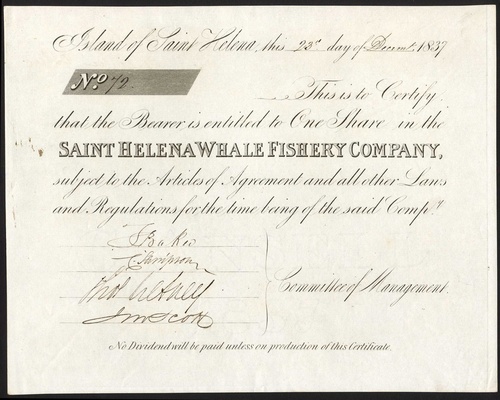 Island of Saint Helena, this 22d day of Decemr. 1837
No. 72.
This is to Certify
that the Bearer is entitled to One Share in the
SAINT HELENA WHALE FISHERY COMPANY,
subject to the Articles of Agreement and all other Laws
and Regulations for the time being of the said Compy.
Baker
Simpson
Committee of Management
Jno Scott
No Dividend will be paid unless on production of this Certificate.